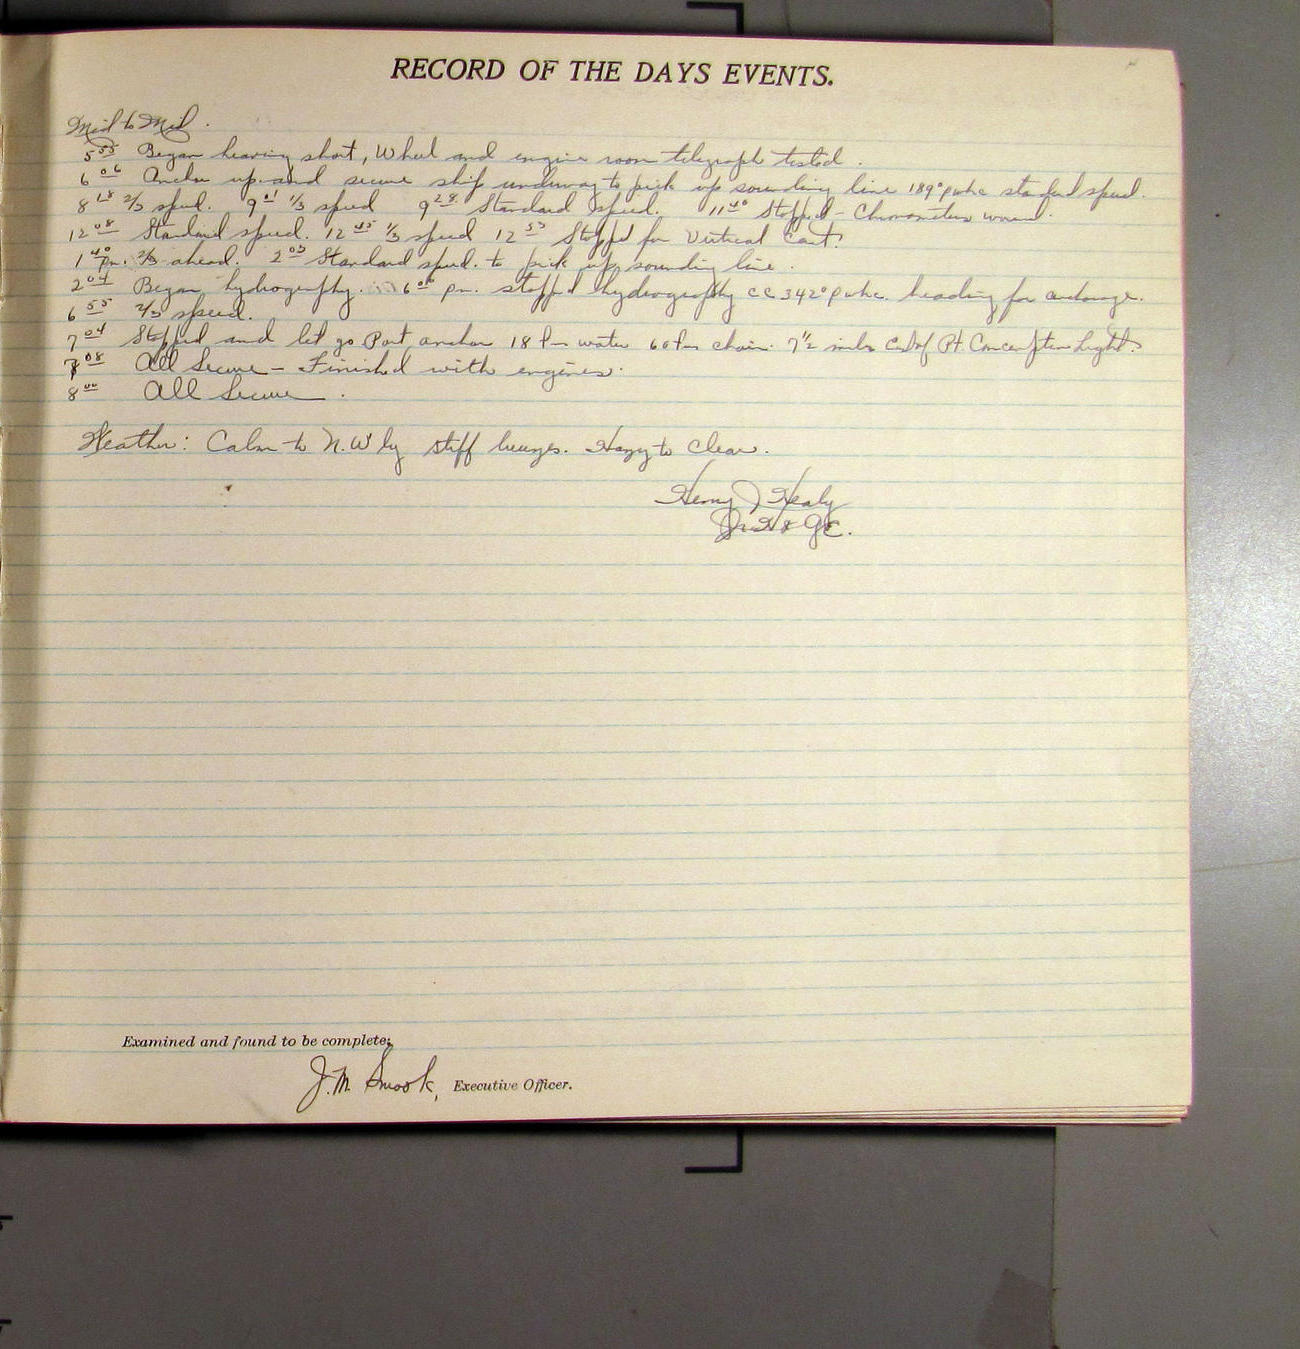 RECORD OF THE DAYS EVENTS.
Mid to Mid.
5 55 Began heaving short, Wheel and engine room telegraph tested.
6 06 Anchor up and secure ship underway to pick up sounding line 189° pwhc standard speed.
8 18 2/3 speed. 9 21 1/3 speed 9 28 Standard speed. 11 40 Stopped - Chronometers wound.
12 08 Standard speed. 12 45 1/3 speed 12 53 Stopped for Vertical Cast.
1 40 pm. 2/3 ahead. 2 03 Standard speed. to pick up sounding line.
2 04 Began hydrography. 6 06 pm. stopped hydrography cc 342° pwhc. heading for anchorage.
6 55 2/3 speed.
7 04 Stopped and let go Port anchor 18 fm water 60 fm chain. 7 1/2 miles of Pt. Conception Light.
7 08 All Secure - Finished with engines.
8 00 All Secure.
Weather: Calm to N.W'ly stiff breezes. Hazy to Clear.
Henry J Healy
Jr. H & G E.
Examined and found to be complete:
J. M. Smook, Executive Officer.